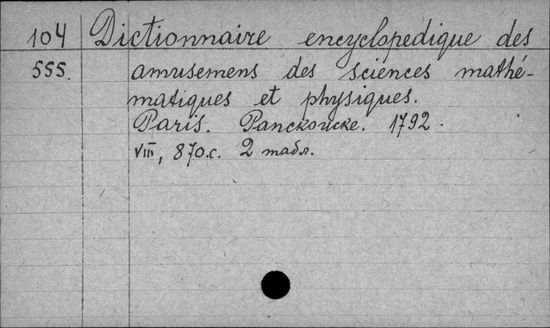 104 Dictionnaire encyclopedique des
555. amusemens des sciences mathé-
matiques et physiques.
Paris. Panckoucke. 1792.
VIII, 870.с. 2 табл.